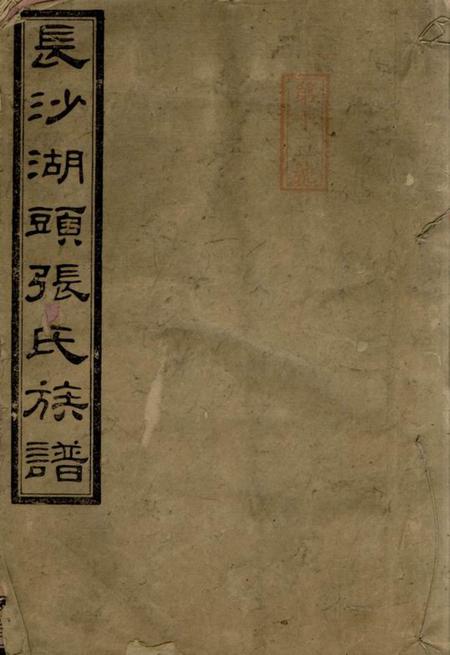 長沙湖頭張氏族譜